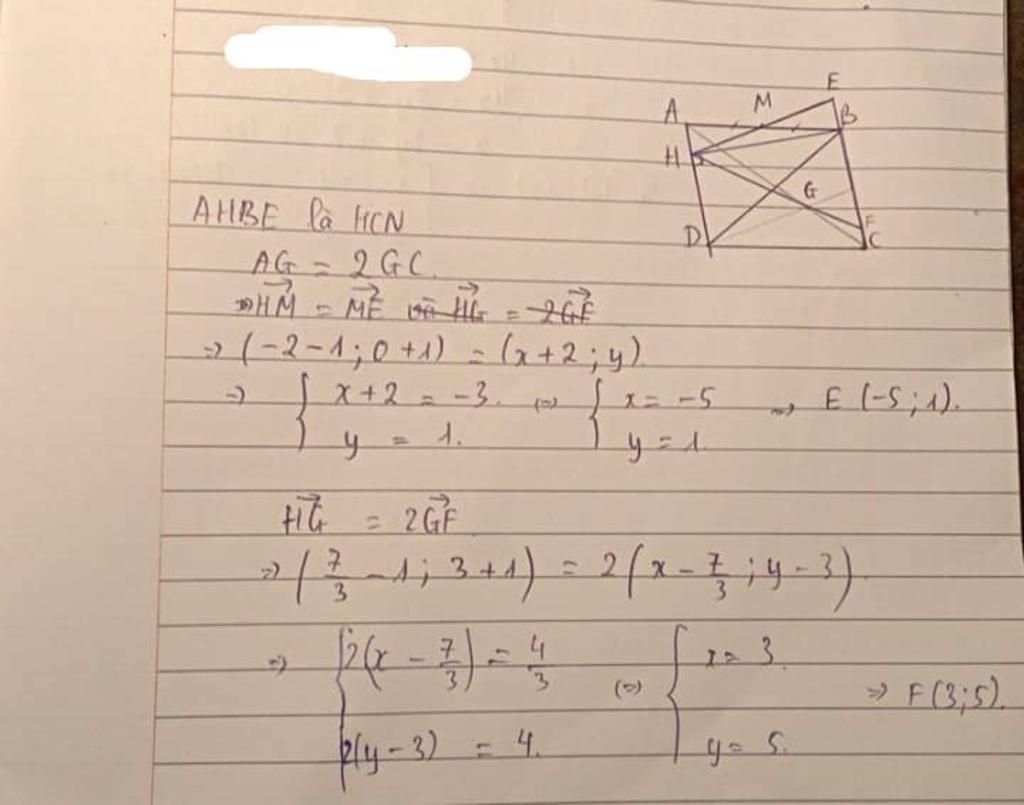 E
A M B
H
G
F
D C
AHBE là HCN
AG = 2GC.
⇒ \overrightarrow{HM} = \overrightarrow{ME} và \overrightarrow{HG} = -2\overrightarrow{GF}
⇒ (-2-1; 0+1) = (x+2; y)
⇒ { x+2 = -3. (=) { x = -5 ⇒ E (-5; 1).
y = 1. y = 1.
\overrightarrow{HG} = 2\overrightarrow{GF}
⇒ (7/3 - 1; 3+1) = 2(x - 7/3; y-3)
⇒ { 2(x - 7/3) = 4/3 (=) { x = 3. ⇒ F(3;5).
2(y-3) = 4. y = 5.